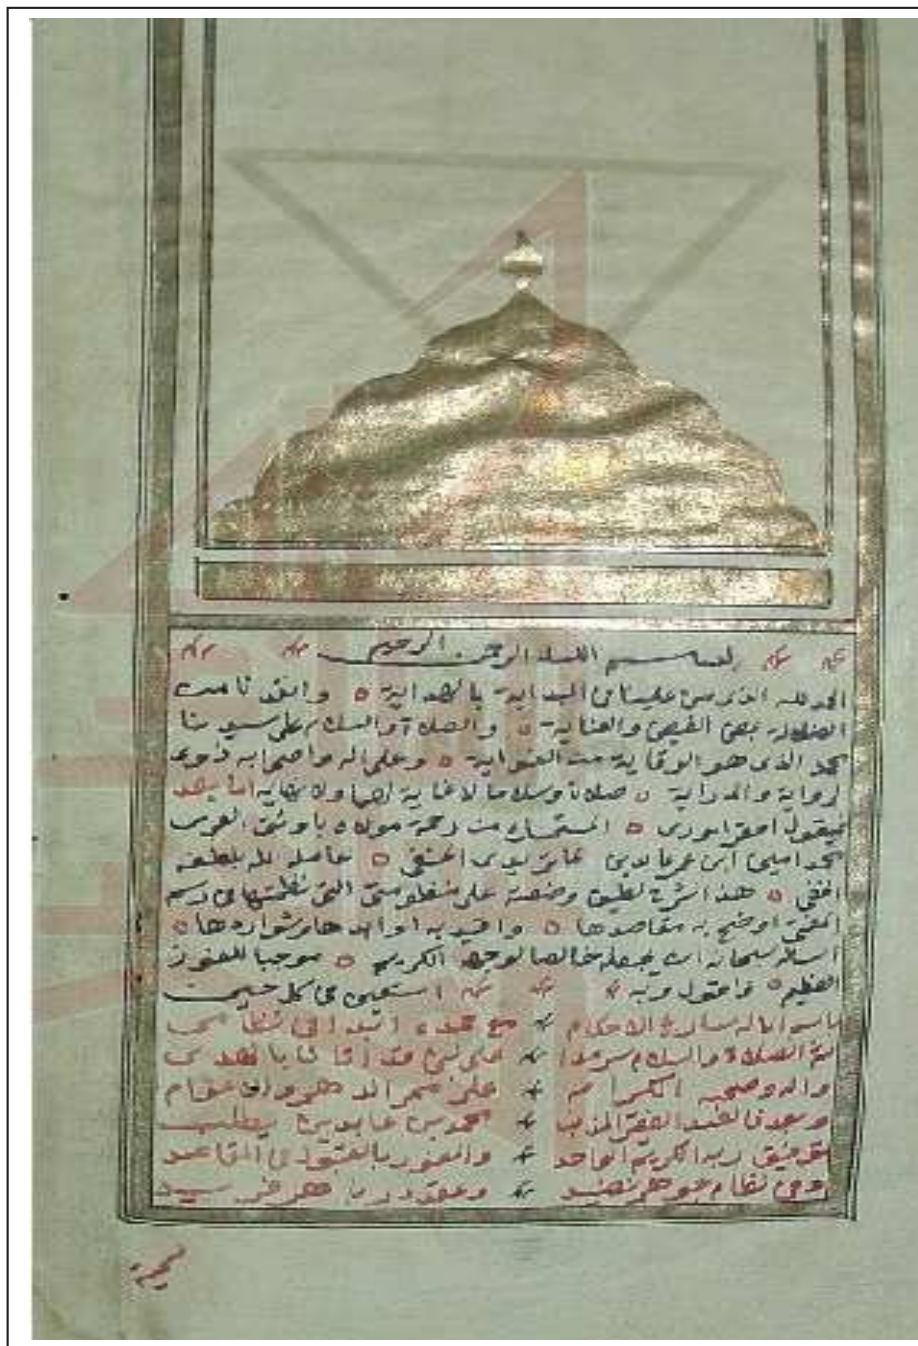 بسم الله الرحمن الرحيم
الحمد لله الذي من علينا في البداية بالهداية وانقذنا من
الضلالة بمحض الفيض والعناية والصلاة والسلام على سيدنا
محمد الذي هو الوقاية من الغواية وعلى اله واصحابه ذوي
الرواية والدراية صلاة وسلاما لا غاية لهما ولا نهاية اما بعد
فيقول افقر الورى المستمسك من رحمة مولاه باوثق العرى
محمد امين ابن عمر عابدين الحنفي عامله الله بلطفه
الخفي هذا شرح لطيف وضعته على منظومتي التي نظمتها في رسم
المفتي اوضح به مقاصدها واقيد به اوابدها وشواردها
اسأله سبحانه ان يجعله خالصا لوجهه الكريم موجبا للفوز
العظيم فاقول وبه استعين في كل حين
باسم الاله شارع الاحكام مع حمده ابدأ في نظامي
ثم الصلاة والسلام سرمدا على نبي قد اتانا بالهدى
واله وصحبه الكرام على ممر الدهر والاعوام
وبعد فالعبد الفقير المذنب محمد بن عابدين يطلب
توفيق ربه الكريم الواحد والفوز بالقبول في المقاصد
وفي نظام جوهر نضيد وعقد در باهر فريد